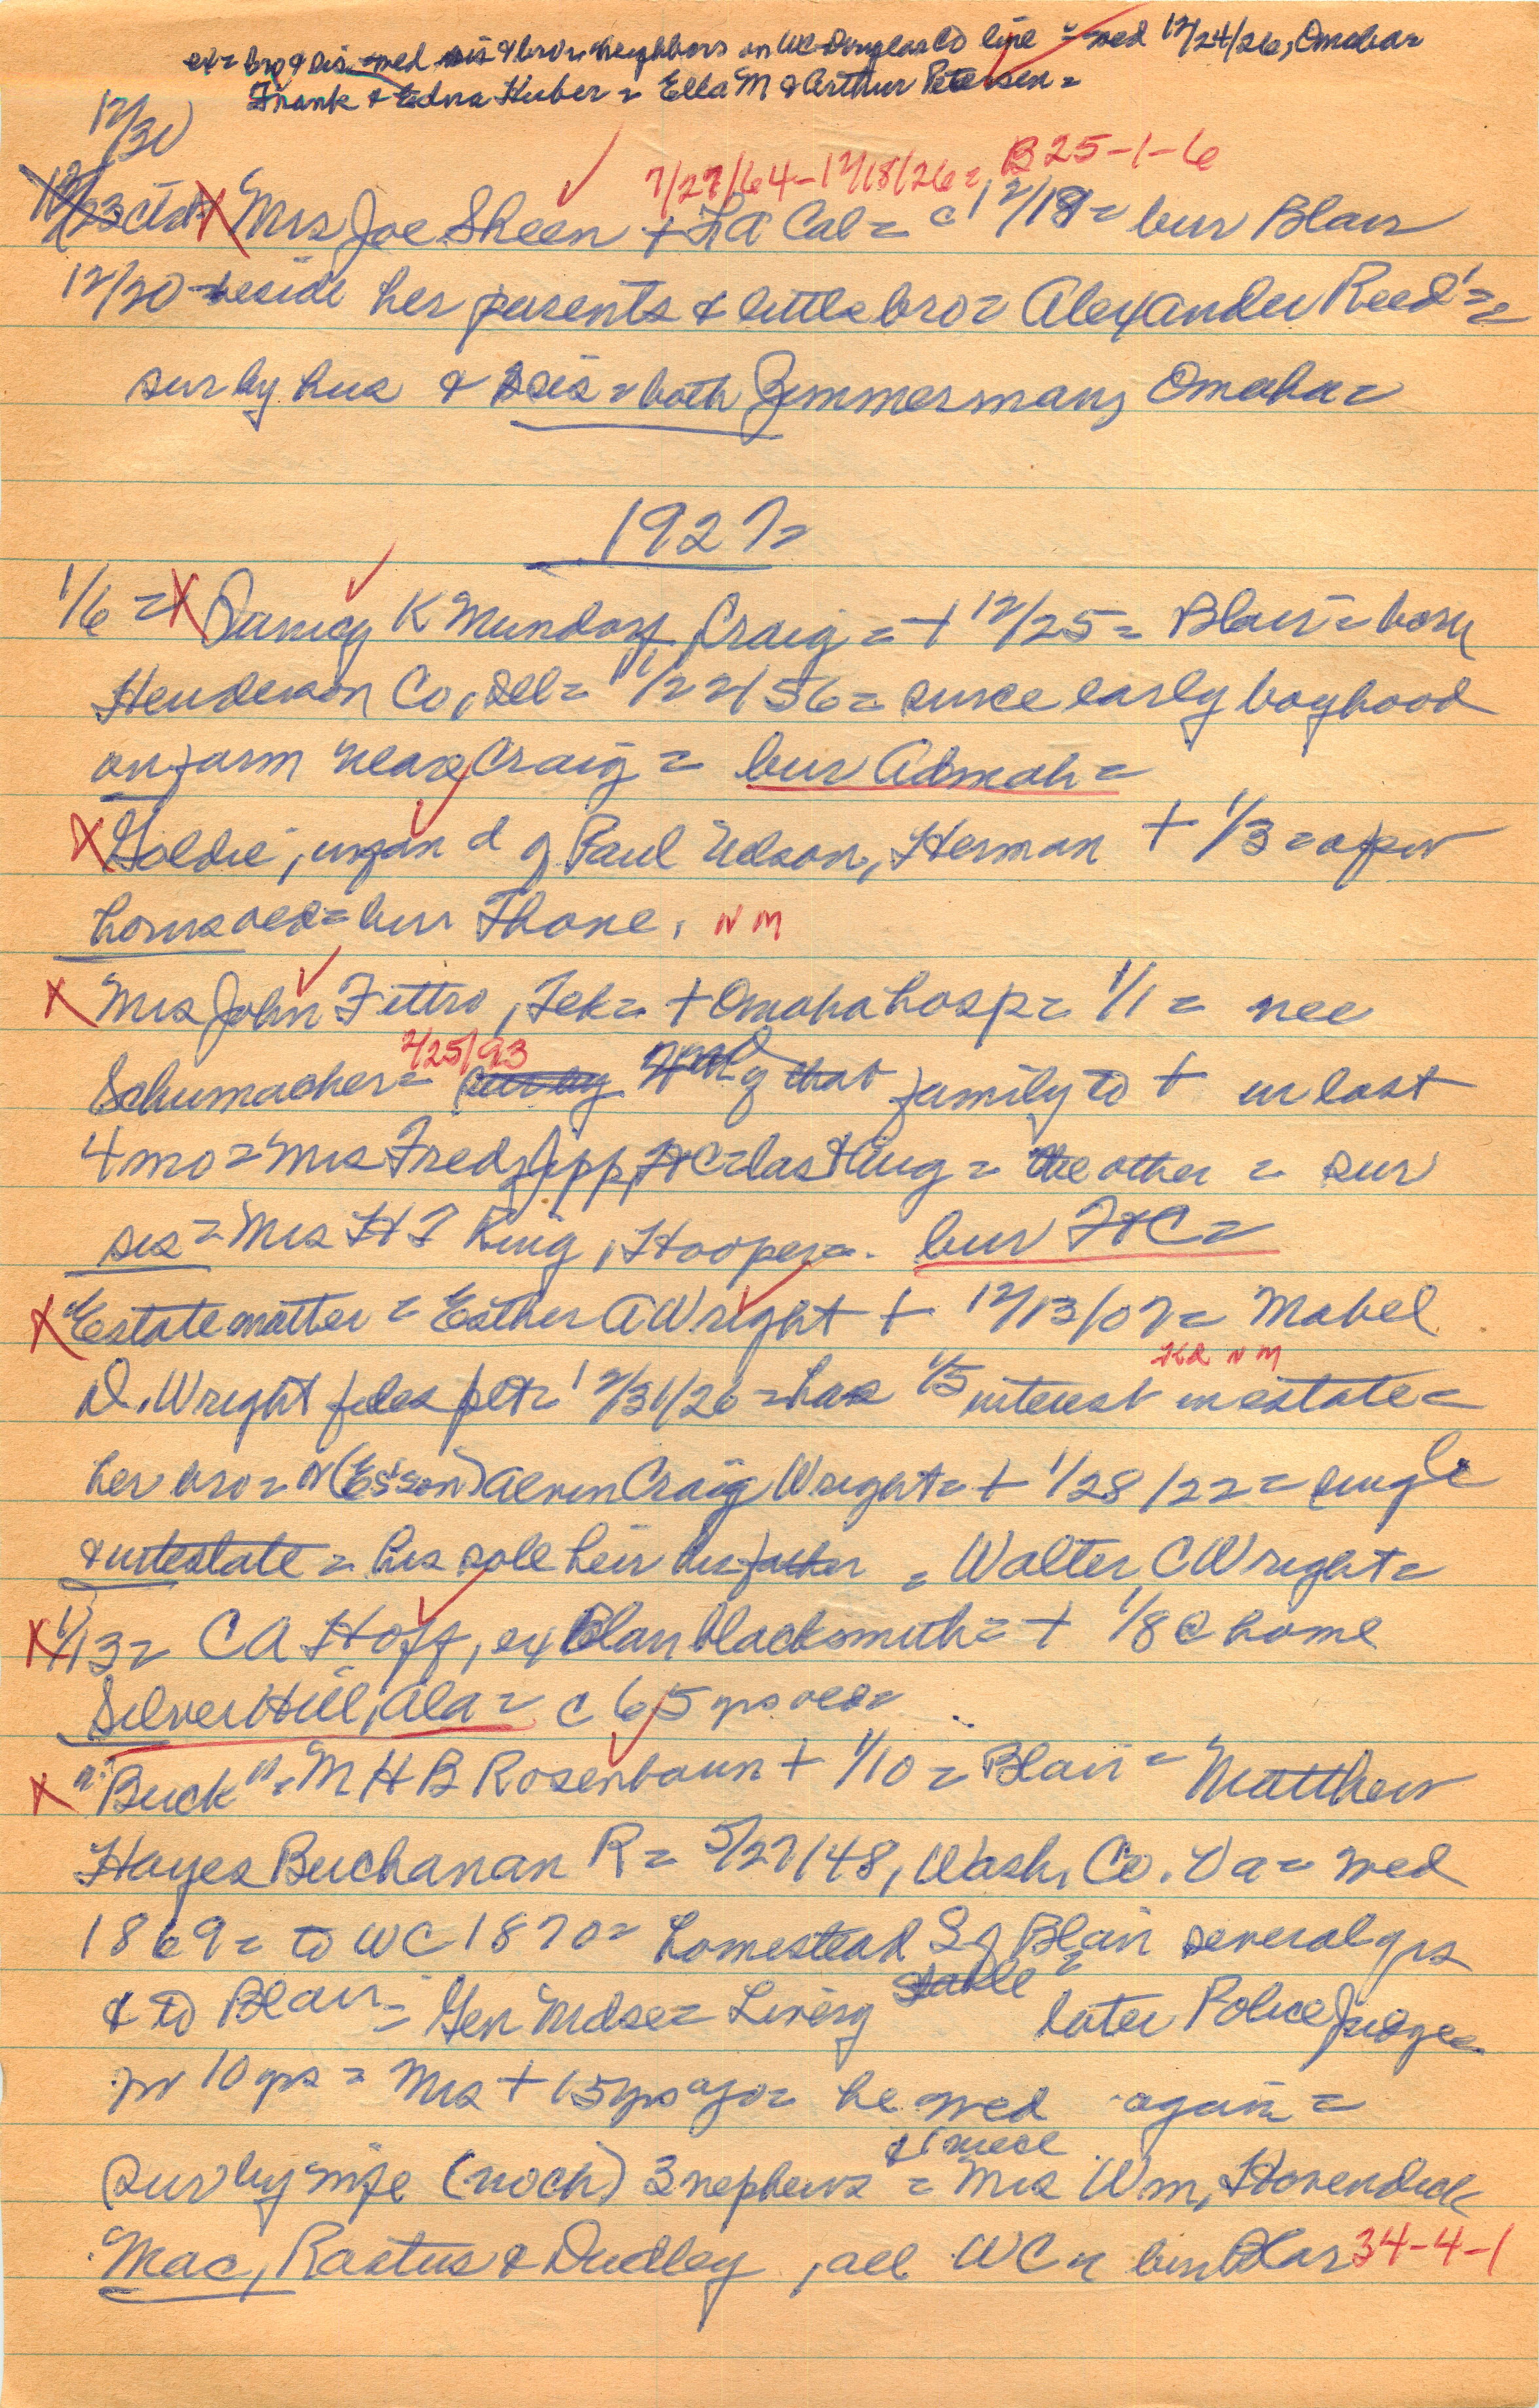 ex= bro & sis wed sis & bro= neighbors on WC-Douglas Co line = wed 12/24/26, Omaha=
Frank & Edna Huber = Ella M & Arthur Petersen=
12/30
7/27/64-12/18/26= B25-1-6
12/23 X Mrs Joe Sheen + LA Cal= c 12/18= bur Blair
12/20 beside her parents & little bro= Alexander Reed's=
sur by hus & sis= both Zimmermans, Omaha=
1927=
1/6 = X K Mundorf, Craig= + 12/25= Blair= born
Henderson Co, Ill= 11/22/56= since early boyhood
on farm near Craig = bur Admah=
X Goldie, d of Paul Edson, Herman + 1/3=
bur Fhone. N M
X Mrs John Fittro, Tek= + Omaha hosp= 1/1= nee
2/25/93
Schumacher= sur by of that family to + in last
4 mo= Mrs Fred Jipp, FtC= last Aug= the other = sur
sis= Mrs H F King, Hooper=. bur FtC=
X Estate matter = Esther A Wright + 12/13/07= Mabel
Kd N M
D. Wright files petn 12/31/26= has 1/5 interest in estate=
her bro= (Es' son) Alvin Craig Wright= + 1/28/22= single
& intestate= his sole heir his father = Walter C Wright=
X 1/13= C A Hoff, ex Blair blacksmith= + 1/8 @ home
Silver Hill, Ala= c 65 yrs old=
X "Buck"= M H B Rosenbaum + 1/10= Blair= Matthew
Hayes Buchanan R= 5/27/48, Wash. Co. Va= wed
1869= to WC 1870= homestead S of Blair several yrs
& to Blair= Gen Mdse= Livery stable = later Police Judge=
for 10 yrs= Mrs + 15 yrs ago= he wed again=
& 1 niece
sur by wife (no ch) 3 nephews = Mrs Wm. Hovendick
Mac, Rastus & Dudley, all WC= bur Blair 34-4-1